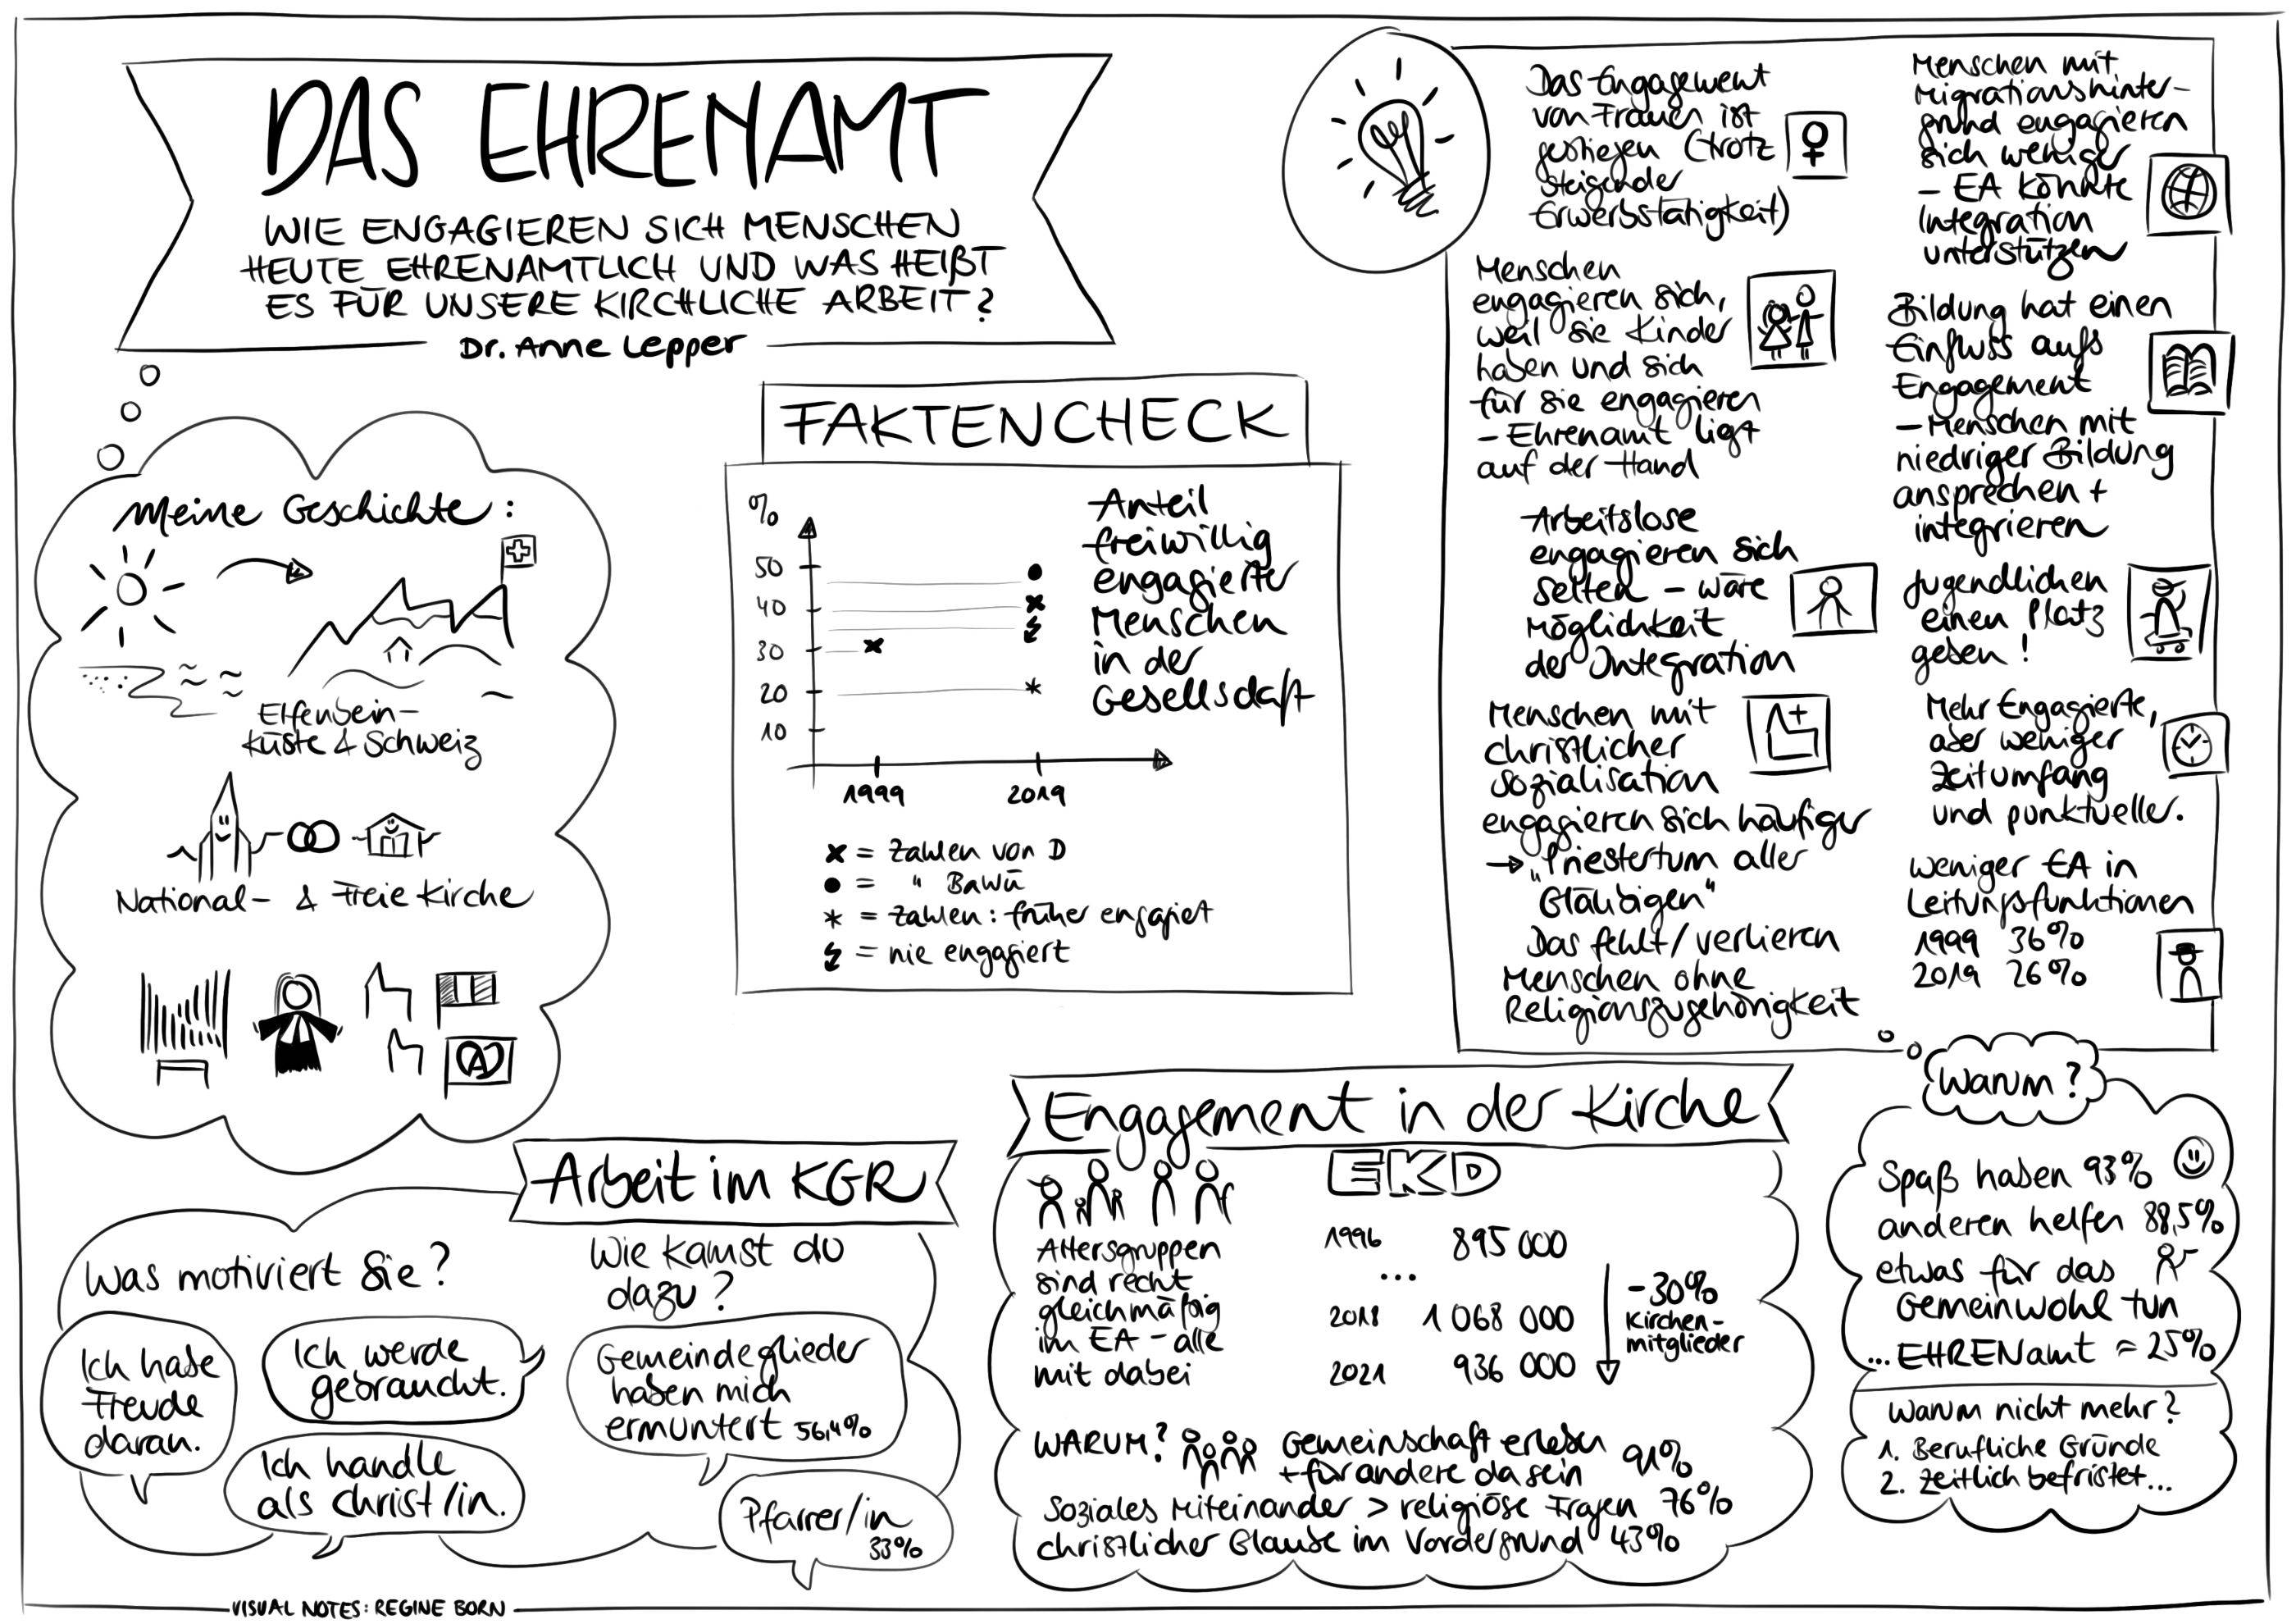 DAS EHRENAMT
WIE ENGAGIEREN SICH MENSCHEN
HEUTE EHRENAMTLICH UND WAS HEIßT
ES FÜR UNSERE KIRCHLICHE ARBEIT?
Dr. Anne Lepper
Meine Geschichte:
Elfenbein-
küste & Schweiz
National- & Freie Kirche
FAKTENCHECK
%
50
40
30
20
10
1999
2019
Anteil
freiwillig
engagierter
Menschen
in der
Gesellschaft
x = Zahlen von D
● = " BaWü
* = Zahlen: früher engagiert
= nie engagiert
Das Engagement
von Frauen ist
gestiegen (trotz
steigender
Erwerbstätigkeit)
Menschen
engagieren sich,
weil sie Kinder
haben und sich
für sie engagieren
- Ehrenamt liegt
auf der Hand
Arbeitslose
engagieren sich
selten - wäre
Möglichkeit
der Integration
Menschen mit
christlicher
Sozialisation
engagieren sich häufiger
→ „Priestertum aller
Gläubigen“
Das fehlt/verlieren
Menschen ohne
Religionszugehörigkeit
Menschen mit
Migrationshinter-
grund engagieren
sich weniger
- EA könnte
Integration
unterstützen
Bildung hat einen
Einfluss aufs
Engagement
- Menschen mit
niedriger Bildung
ansprechen +
integrieren
Jugendlichen
einen Platz
geben!
Mehr Engagierte,
aber weniger
Zeitumfang
und punktueller.
Weniger EA in
Leitungsfunktionen
1999 36%
2019 26%
Warum?
Spaß haben 93%
anderen helfen 88,5%
etwas für das
Gemeinwohl tun
... EHRENamt = 25%
Warum nicht mehr?
1. Berufliche Gründe
2. Zeitlich befristet...
Arbeit im KGR
Was motiviert Sie?
Ich habe
Freude
daran.
Ich werde
gebraucht.
Ich handle
als Christ/in.
Wie kamst du
dazu?
Gemeindeglieder
haben mich
ermuntert 56,4%
Pfarrer/in
33%
Engagement in der Kirche
Altersgruppen
sind recht
gleichmäßig
im EA - alle
mit dabei
EKD
1996 895 000
...
2018 1 068 000
2021 936 000
-30%
Kirchen-
mitglieder
WARUM? Gemeinschaft erleben
+ für andere da sein 91%
Soziales Miteinander > religiöse Fragen 76%
christlicher Glaube im Vordergrund 43%
VISUAL NOTES: REGINE BORN